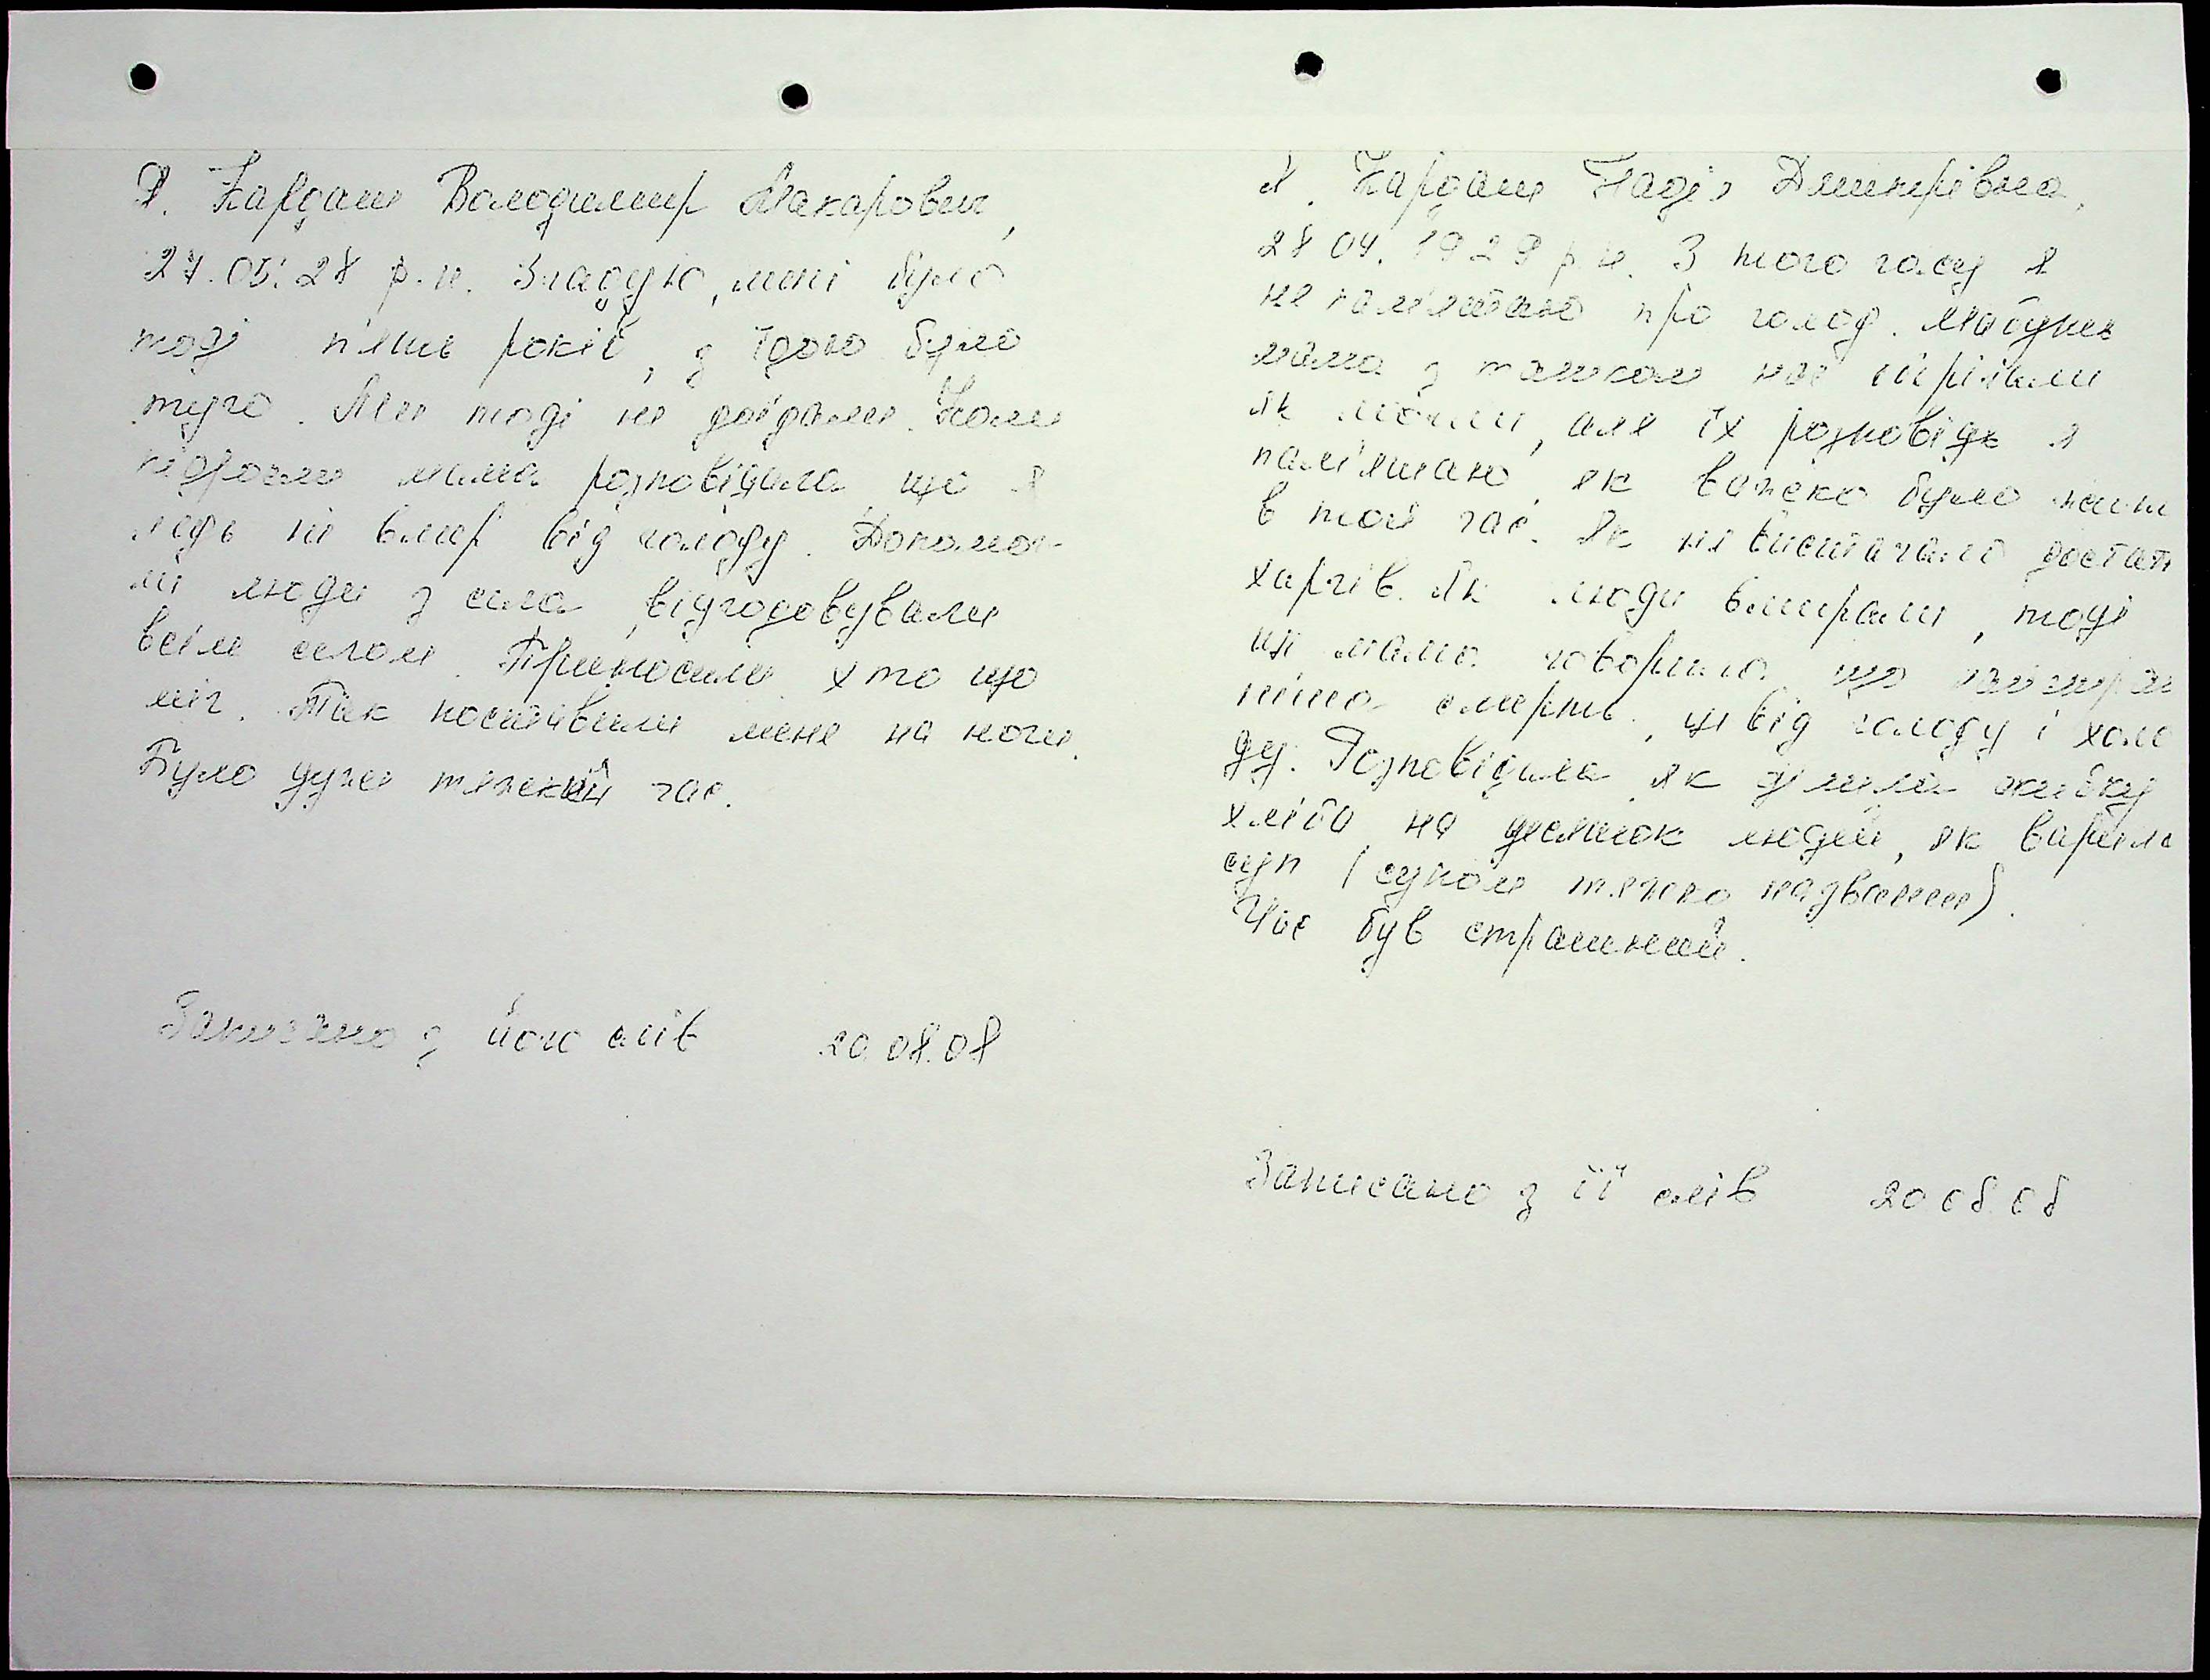 Я. Кардаш Володимир Макарович,
27.05.28 р.н. Згадую, мені було
тоді п'ять років, з їдою було
туго. Ми тоді не доїдали. Коли
підросли мама розповідала що я
ледь не вмер від голоду. Допомог-
ли люди з села, відгодовували
всім селом. Приносили хто що
міг. Так поставили мене на ноги.
Було дуже тяжкий час.
Записано з його слів 20.08.08
Я. Кардаш Надія Дмитрівна,
28 04. 1929 р.н. З того часу я
не пам'ятаю про голод. Мабуть
мама з татком нас
як могли, але їх розповідь я
пам'ятаю, як важко було жити
в той час. Як не вистачало достат
харчів. Як люди вмирали, тоді
ще мама говорила що
смерть, це від голоду і холо
ду. Розповідала як ділила скибку
хліба на десяток людей, як варила
суп (супом тяжко назвати).
Час був страшний.
Записано з її слів 20 08 08